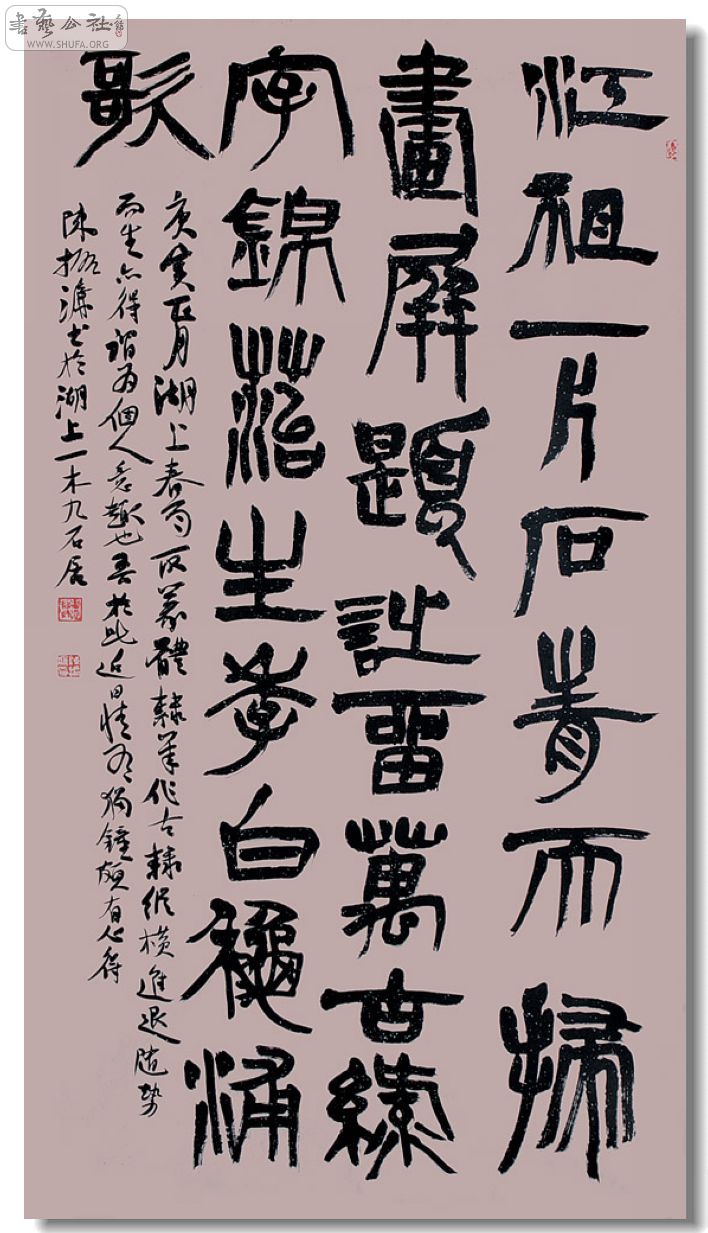 書藝公社
WWW.SHUFA.ORG
江祖一片石青天掃
畫屏題詩留萬古綠
字錦苔生李白龝浦
歌
庚寅正月湖上春雨取篆體隸筆作古隸縱橫進退隨勢
而生亦得謂為個人意趣也吾於此近日情有獨鍾頗有心得
陳振濂書於湖上一木九石居